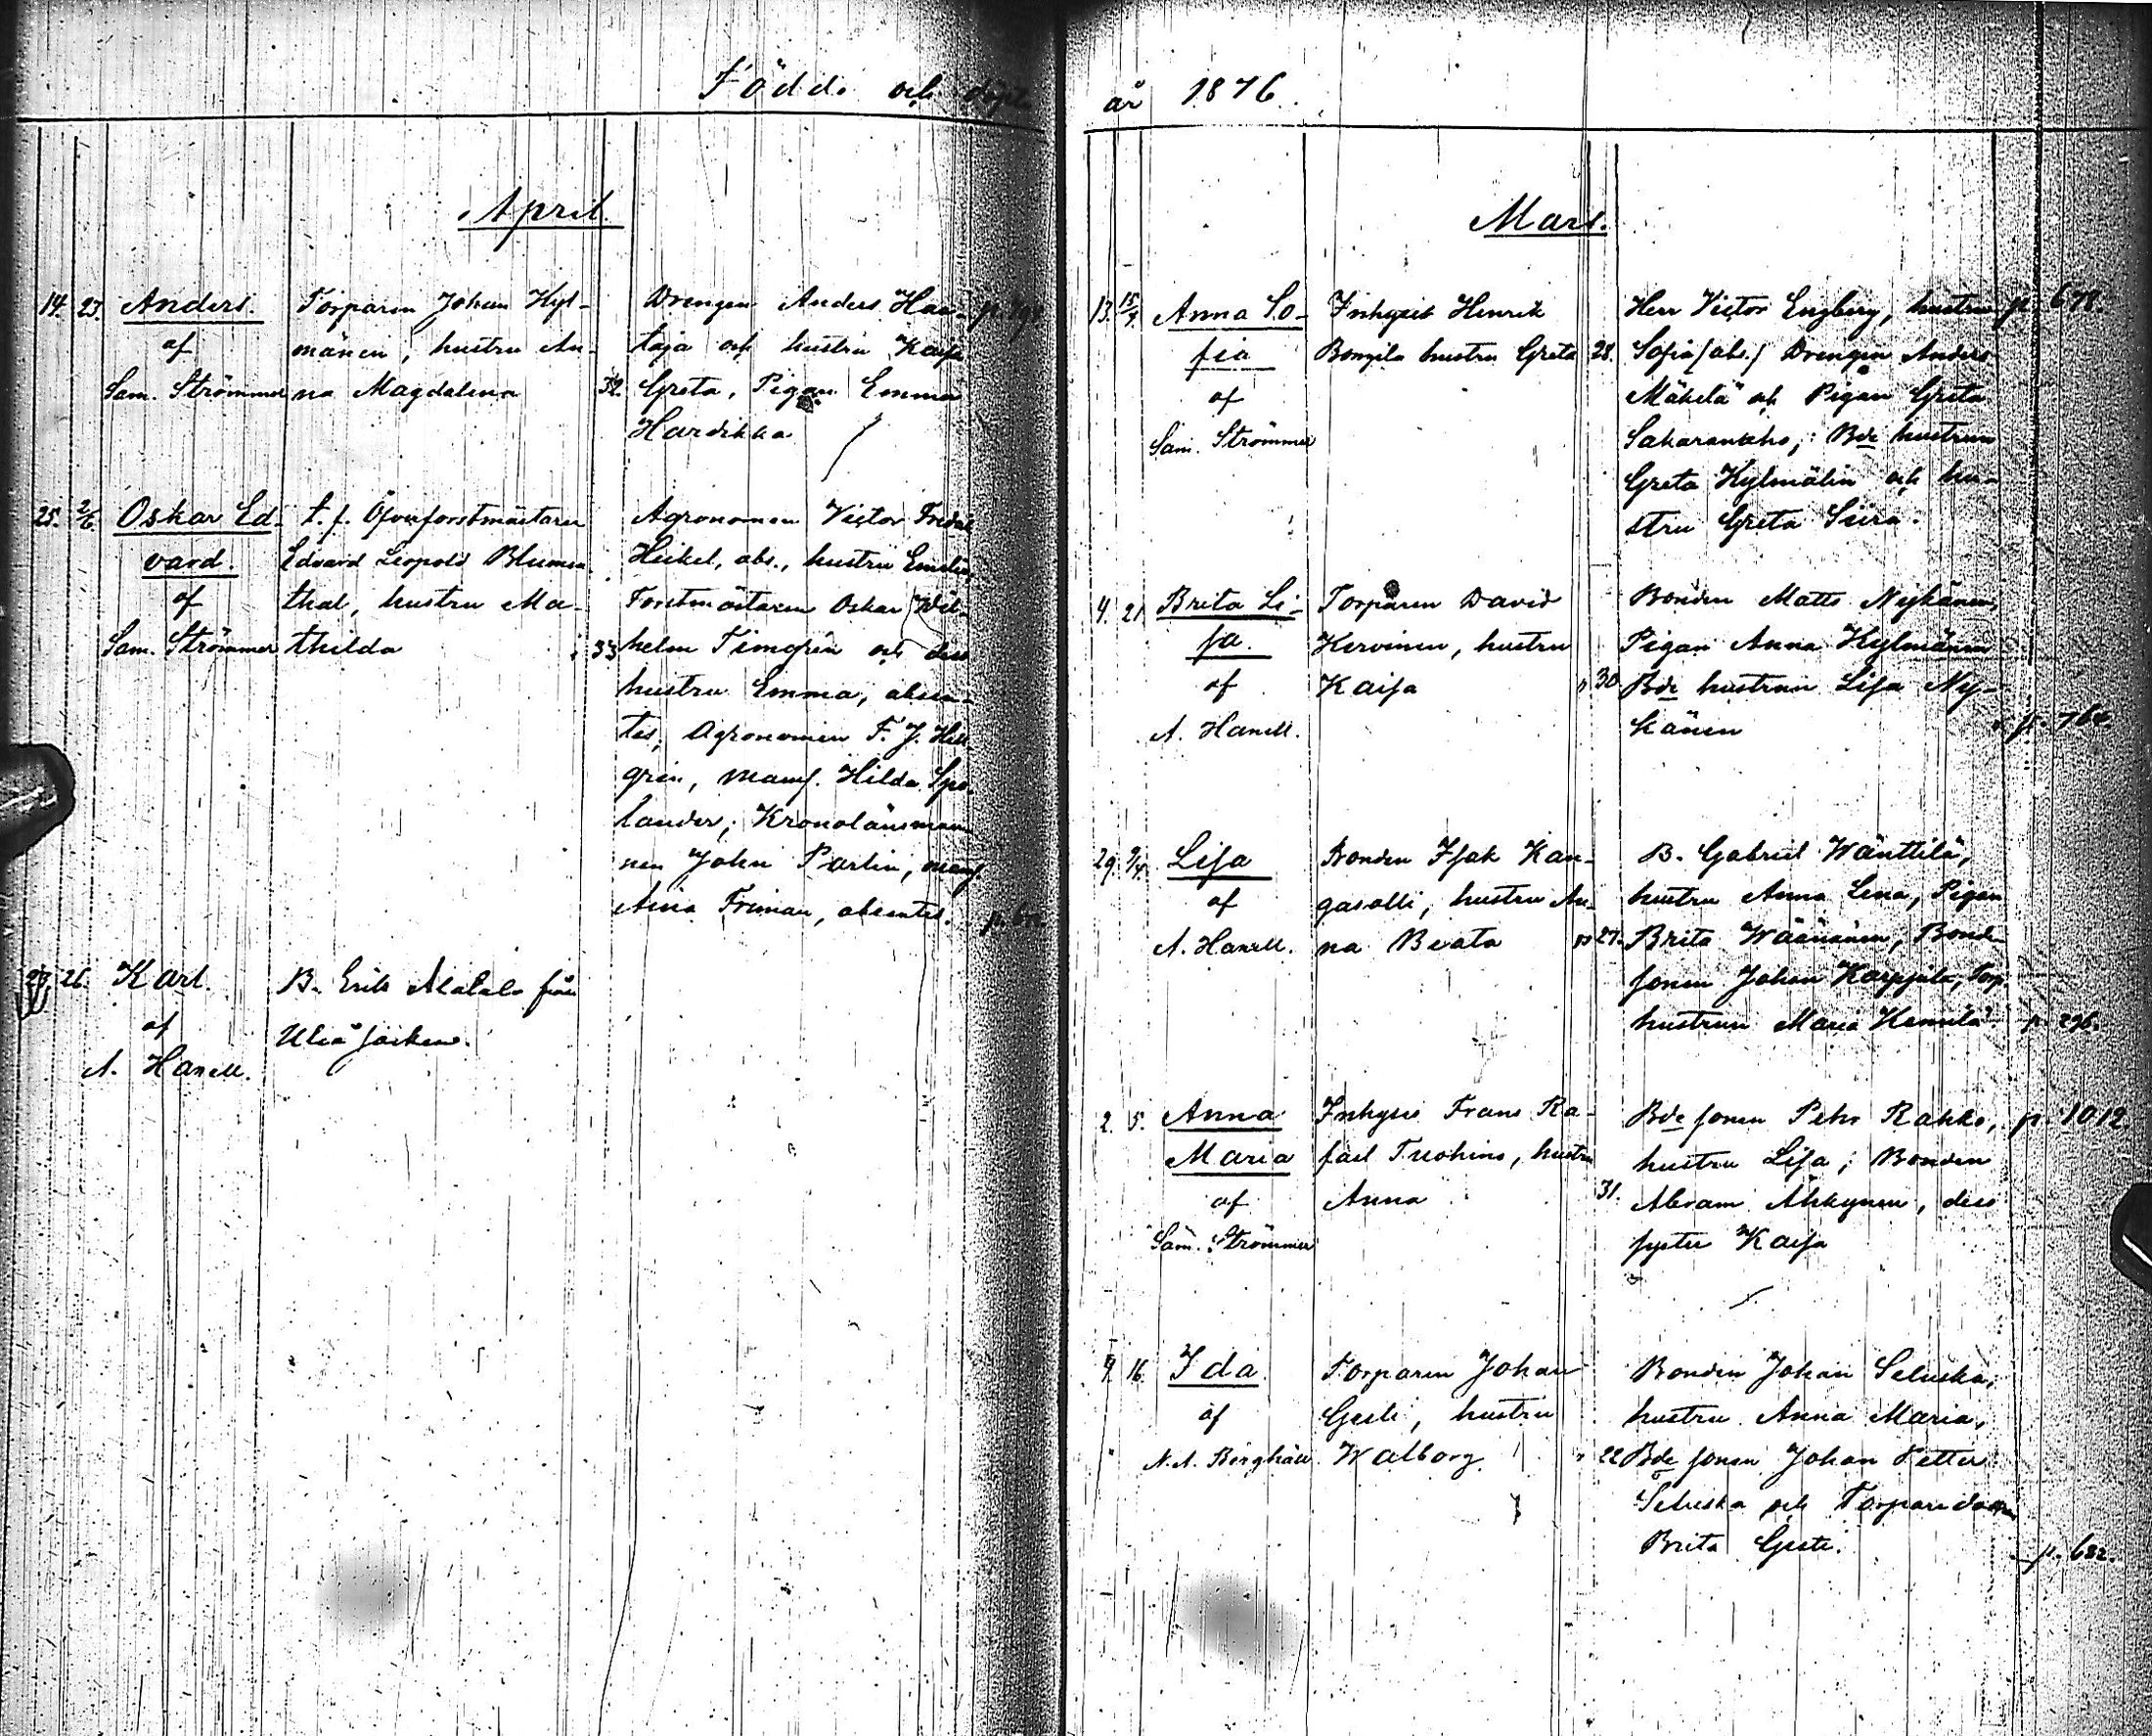 Födde och döpte
April.
14. 23. Anders.
af
Sam. Strömmer
Torparen Johan Kyl-
mänen, hustru An-
na Magdalena
32.
Drengen Anders Hau-
taja och hustru Kaisa
Greta, Pigan Emma
Hardikka
25. 2/6 Oskar Ed-
vard.
af
Sam. Strömmer
t. f. Öfverforstmästaren
Edvard Leopold Blumen-
thal, hustru Ma-
thilda
33
Agronomen Victor Fredrik
Heikel, abs., hustru Emilia,
Forstmästaren Oskar Wil-
helm Timgrén och dess
hustru Emma, absen-
tes, Agronomen F. J. Hell-
grén, mamsell Hilda
lander, Kronolänsman-
nen John Parlin,
Aina Friman, absentes.
26. Karl.
af
A. Hanell.
B. Erik Alatalo från
Uleå socken.
år 1876.
Mars.
13. 15/4 Anna So-
fia
af
Sam. Strömmer
Inhyses Henrik
hustru Greta
28.
Herr Victor Engberg, hustru
Sofia (abs.) Drengen Anders
Mäkelä och Pigan Greta
Bde hustrun
Greta Kylmälin och hu-
stru Greta Siira.
p. 678
4. 21 Brita Li-
sa.
af
A. Hanell.
Torparen David
Kervinen, hustru
Kaisa
30
Bonden Matts Nykänen,
Pigan Anna Kylmänen
Bde hustrun Lisa Ny-
känen
p. 764
29. 9/4 Lisa
af
A. Hanell.
Bonden Isak Kan-
gasolli, hustru An-
na Beata
27.
B. Gabriel Wänttilä,
hustru Anna Lena, Pigan
Brita Väänänen, Bonde-
sonen Johan Karppila, Torp.
hustrun Maria Hemilä.
p. 296.
2. 5. Anna
Maria
af
Sam. Strömmer
Inhyses Frans Ra-
fael Tuohino, hustru
Anna
31.
Bde sonen Petter Rahko,
hustru Lisa; Bonden
Abram Ahkynen, dess
syster Kaisa
p. 1012
9. 16. Ida.
af
N. A. Berghäll
Torparen Johan
Geste, hustru
Walborg.
22
Bonden Johan Seluska,
hustru Anna Maria,
Bde sonen Johan Petter
Seluska och Torparedottren
Brita Geste.
p. 682.